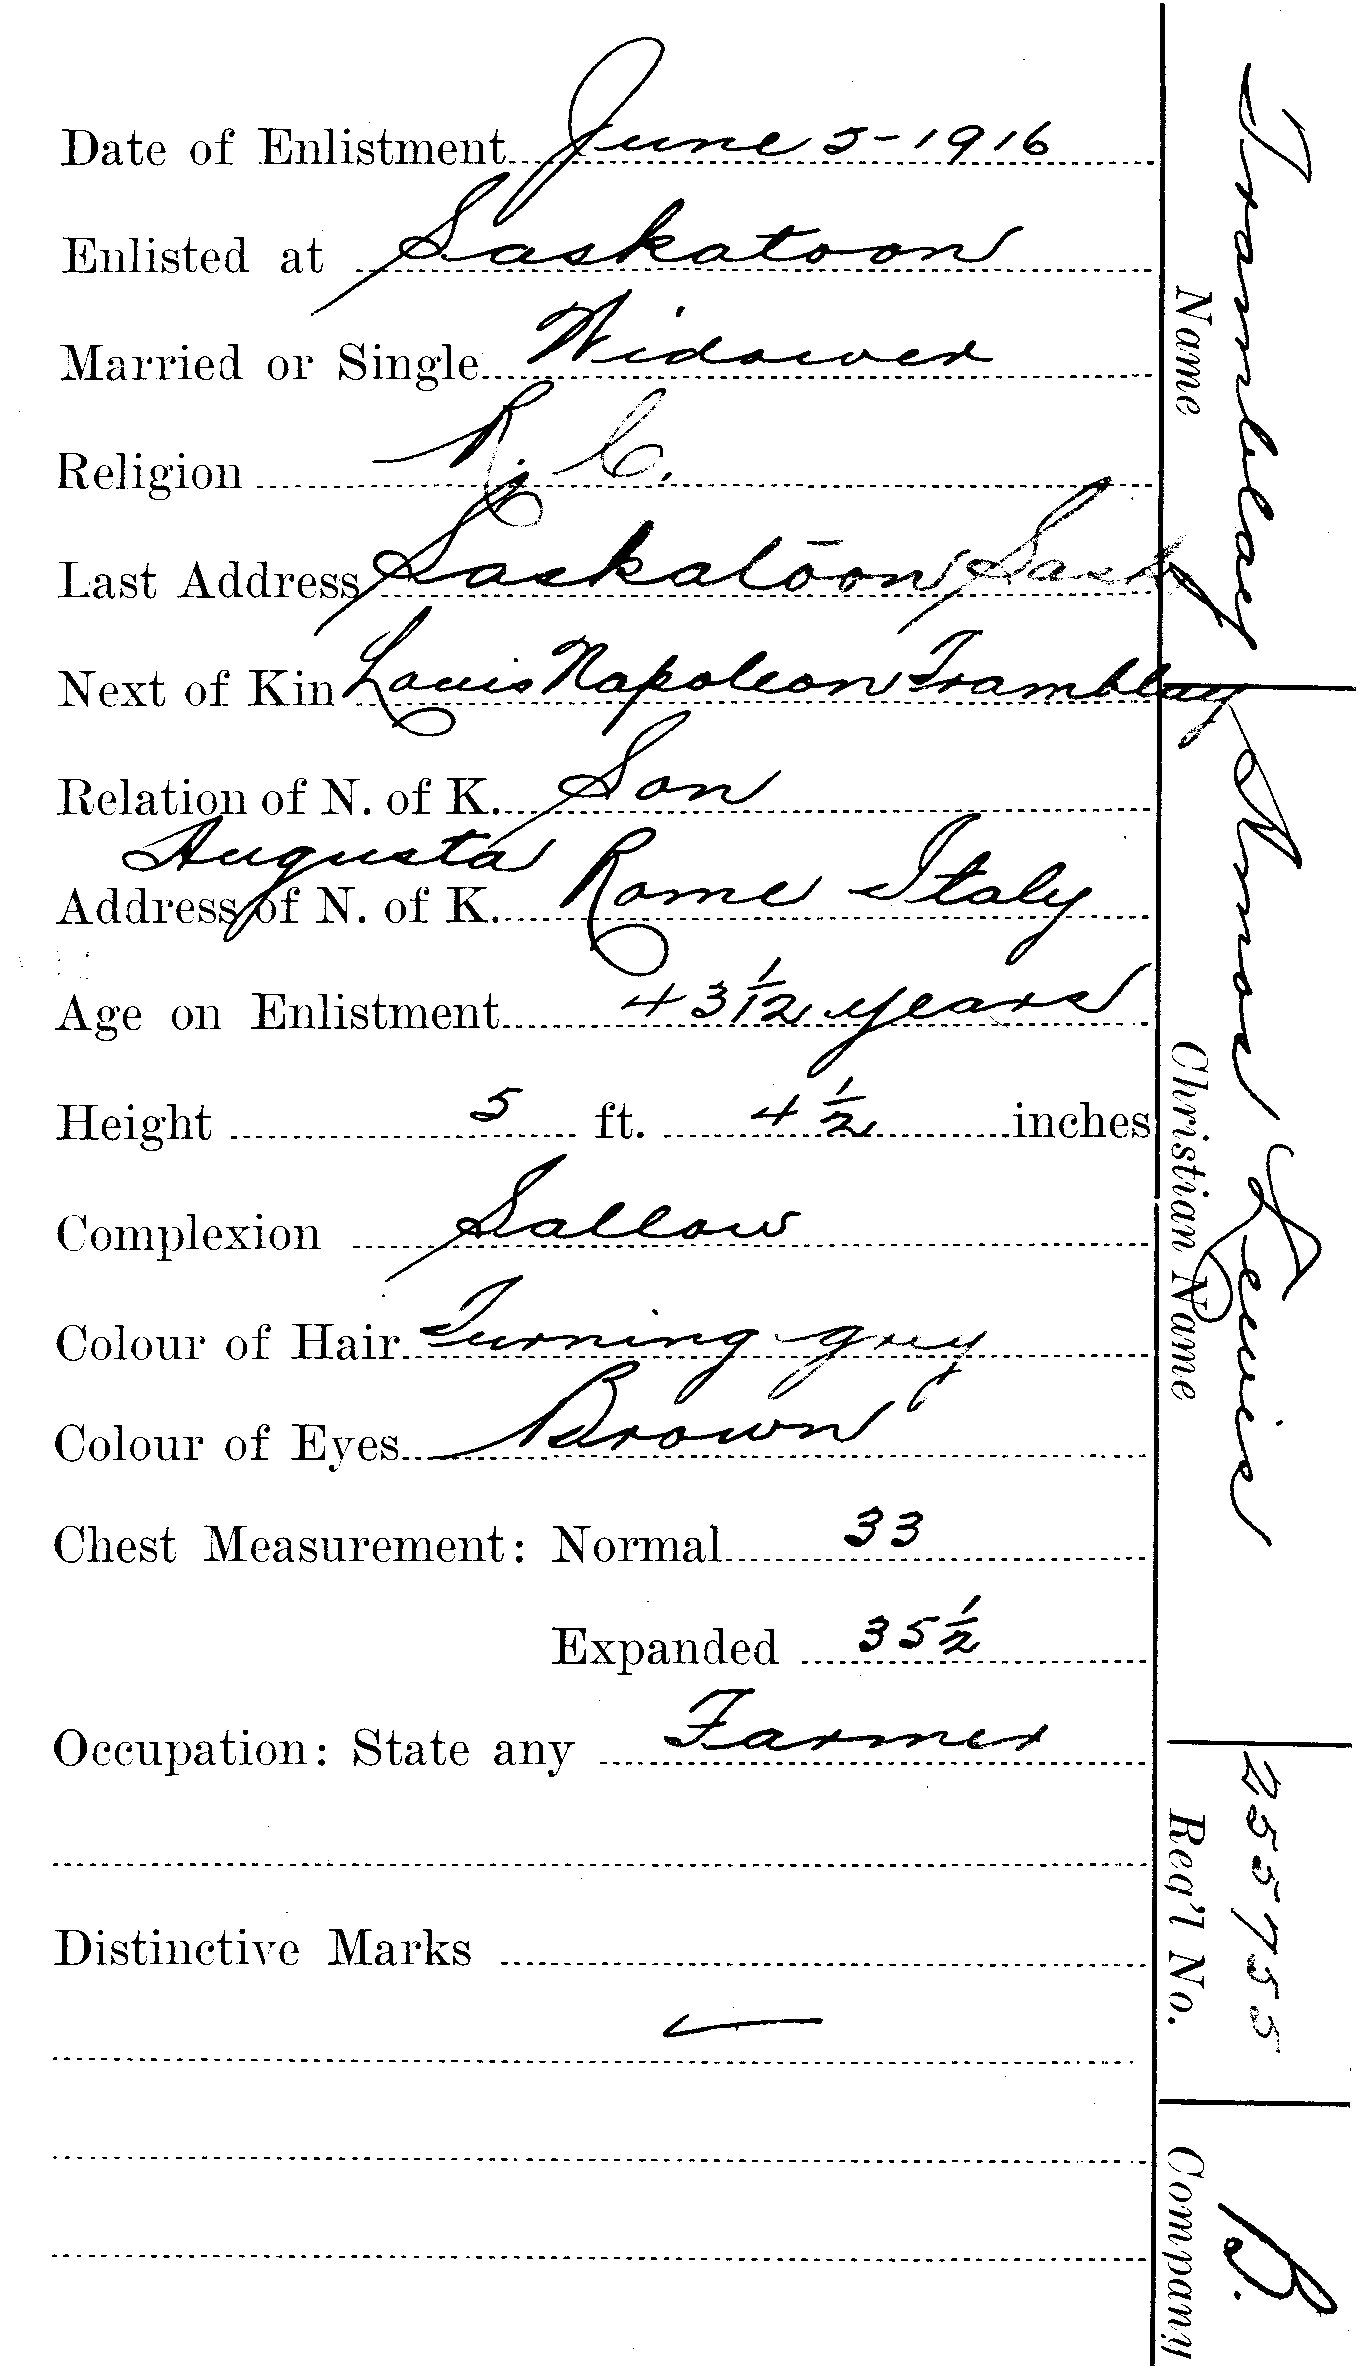 Date of Enlistment June 5-1916
Enlisted at Saskatoon
Married or Single Widower
Religion R. C.
Last Address Saskatoon Sask
Next of Kin Louis Napoleon Tramblay
Relation of N. of K. Son
Augusta
Address of N. of K. Rome Italy
Age on Enlistment 43 1/12 years
Height 5 ft. 4 1/2 inches
Complexion Sallow
Colour of Hair Turning grey
Colour of Eyes Brown
Chest Measurement: Normal 33
Expanded 35 1/2
Occupation: State any Farmer
Distinctive Marks —
Tramblay
Name
Louis
Christian Name
255755
Reg'l No.
B.
Company